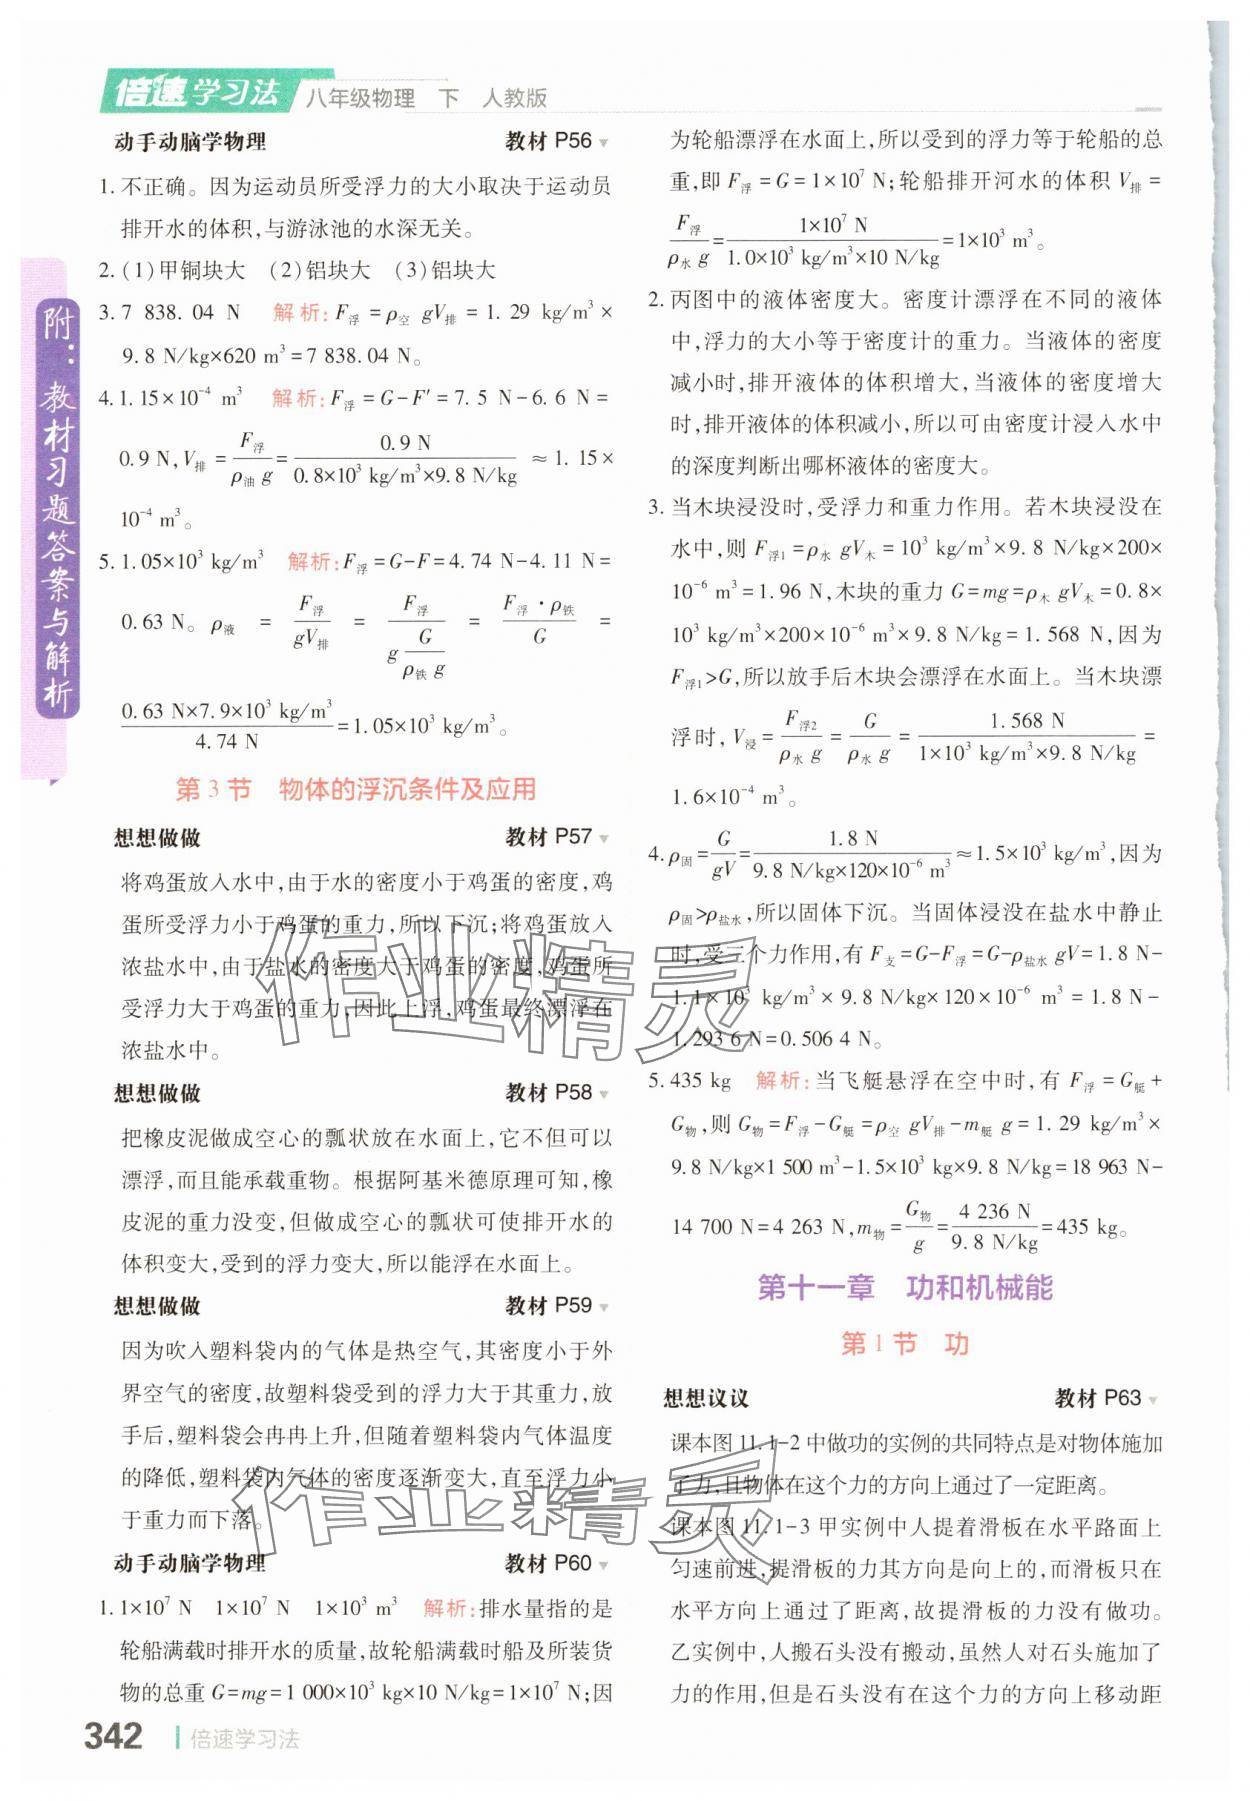 倍速学习法 八年级物理 下 人教版
附：教材习题答案与解析
动手动脑学物理 教材 P56
1. 不正确。因为运动员所受浮力的大小取决于运动员
排开水的体积,与游泳池的水深无关。
2. (1)甲铜块大 (2)铝块大 (3)铝块大
3. 7 838. 04 N 解析: F浮 = ρ空 gV排 = 1. 29 kg/m³ ×
9.8 N/kg×620 m³ = 7 838.04 N。
4. 1.15×10⁻⁴ m³ 解析: F浮 = G-F′ = 7. 5 N-6. 6 N =
0.9 N, V排 = F浮/(ρ油 g) = 0.9 N/(0.8×10³ kg/m³×9.8 N/kg) ≈ 1. 15×
10⁻⁴ m³。
5. 1.05×10³ kg/m³ 解析: F浮 = G-F = 4.74 N-4.11 N =
0.63 N。 ρ液 = F浮/(gV排) = F浮/(g G/(ρ铁 g)) = F浮·ρ铁/G =
0.63 N×7.9×10³ kg/m³/4.74 N = 1.05×10³ kg/m³。
第 3 节 物体的浮沉条件及应用
想想做做 教材 P57
将鸡蛋放入水中,由于水的密度小于鸡蛋的密度,鸡
蛋所受浮力小于鸡蛋的重力,所以下沉;将鸡蛋放入
浓盐水中,由于盐水的密度大于鸡蛋的密度,鸡蛋所
受浮力大于鸡蛋的重力,因此上浮,鸡蛋最终漂浮在
浓盐水中。
想想做做 教材 P58
把橡皮泥做成空心的瓢状放在水面上,它不但可以
漂浮,而且能承载重物。根据阿基米德原理可知,橡
皮泥的重力没变,但做成空心的瓢状可使排开水的
体积变大,受到的浮力变大,所以能浮在水面上。
想想做做 教材 P59
因为吹入塑料袋内的气体是热空气,其密度小于外
界空气的密度,故塑料袋受到的浮力大于其重力,放
手后,塑料袋会冉冉上升,但随着塑料袋内气体温度
的降低,塑料袋内气体的密度逐渐变大,直至浮力小
于重力而下落。
动手动脑学物理 教材 P60
1. 1×10⁷ N 1×10⁷ N 1×10³ m³ 解析:排水量指的是
轮船满载时排开水的质量,故轮船满载时船及所装货
物的总重 G=mg=1 000×10³ kg×10 N/kg=1×10⁷ N;因
为轮船漂浮在水面上,所以受到的浮力等于轮船的总
重,即 F浮 = G = 1×10⁷ N;轮船排开河水的体积 V排 =
F浮/(ρ水 g) = 1×10⁷ N/(1.0×10³ kg/m³×10 N/kg) = 1×10³ m³。
2. 丙图中的液体密度大。密度计漂浮在不同的液体
中,浮力的大小等于密度计的重力。当液体的密度
减小时,排开液体的体积增大,当液体的密度增大
时,排开液体的体积减小,所以可由密度计浸入水中
的深度判断出哪杯液体的密度大。
3. 当木块浸没时,受浮力和重力作用。若木块浸没在
水中,则 F浮1 = ρ水 gV木 = 10³ kg/m³×9. 8 N/kg×200×
10⁻⁶ m³ = 1.96 N,木块的重力 G = mg = ρ木 gV木 = 0.8×
10³ kg/m³×200×10⁻⁶ m³×9.8 N/kg = 1.568 N,因为
F浮1>G,所以放手后木块会漂浮在水面上。当木块漂
浮时, V浸 = F浮2/(ρ水 g) = G/(ρ水 g) = 1.568 N/(1×10³ kg/m³×9.8 N/kg) =
1.6×10⁻⁴ m³。
4. ρ固 = G/(gV) = 1.8 N/(9.8 N/kg×120×10⁻⁶ m³) ≈ 1.5×10³ kg/m³,因为
ρ固>ρ盐水,所以固体下沉。当固体浸没在盐水中静止
时,受三个力作用,有 F支 = G-F浮 = G-ρ盐水 gV = 1.8 N-
1.1×10³ kg/m³×9.8 N/kg×120×10⁻⁶ m³ = 1.8 N-
1.293 6 N = 0.506 4 N。
5. 435 kg 解析:当飞艇悬浮在空中时,有 F浮 = G艇 +
G物,则 G物 = F浮 - G艇 = ρ空 gV排 - m艇 g = 1. 29 kg/m³×
9.8 N/kg×1 500 m³-1.5×10³ kg×9.8 N/kg = 18 963 N-
14 700 N = 4 263 N, m物 = G物/g = 4 236 N/9.8 N/kg = 435 kg。
第十一章 功和机械能
第 1 节 功
想想议议 教材 P63
课本图 11.1-2 中做功的实例的共同特点是对物体施加
了力,且物体在这个力的方向上通过了一定距离。
课本图 11.1-3 甲实例中人提着滑板在水平路面上
匀速前进,提滑板的力其方向是向上的,而滑板只在
水平方向上通过了距离,故提滑板的力没有做功。
乙实例中,人搬石头没有搬动,虽然人对石头施加了
力的作用,但是石头没有在这个力的方向上移动距
342 倍速学习法
作业精灵
作业精灵